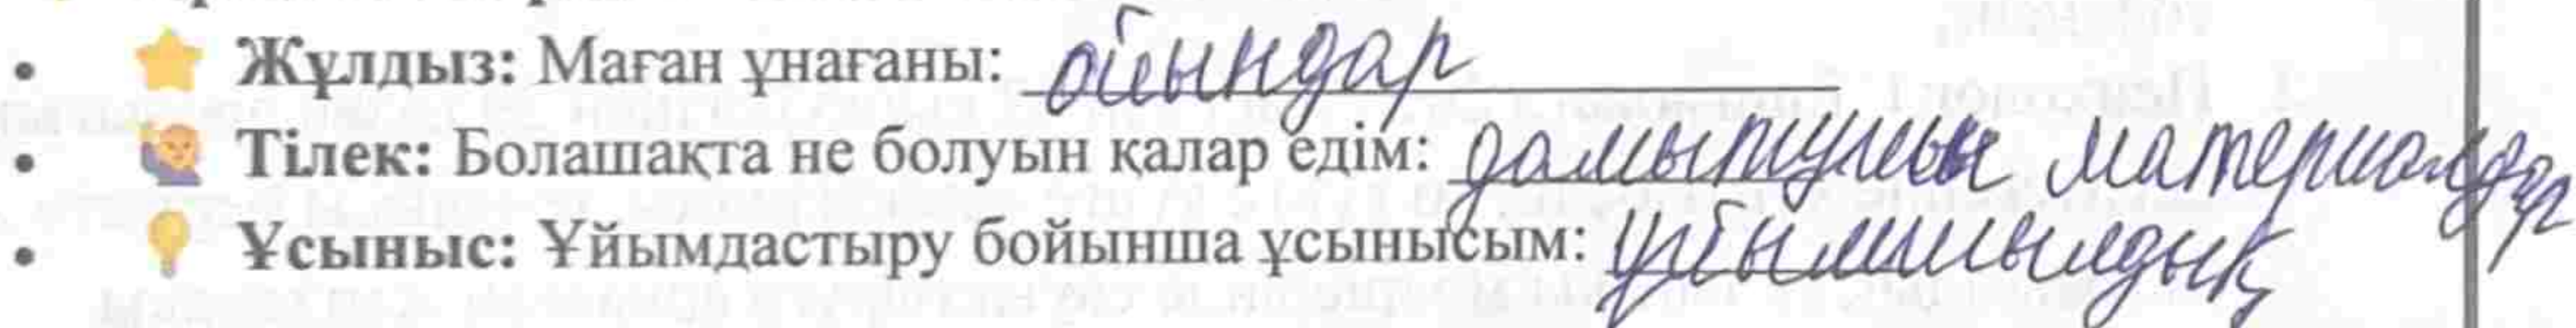 • ⭐ Жұлдыз: Маған ұнағаны: ойындар
• 🙋 Тілек: Болашақта не болуын қалар едім: дамытушы материалдар
• 💡 Ұсыныс: Ұйымдастыру бойынша ұсынысым: ұйымшылдық